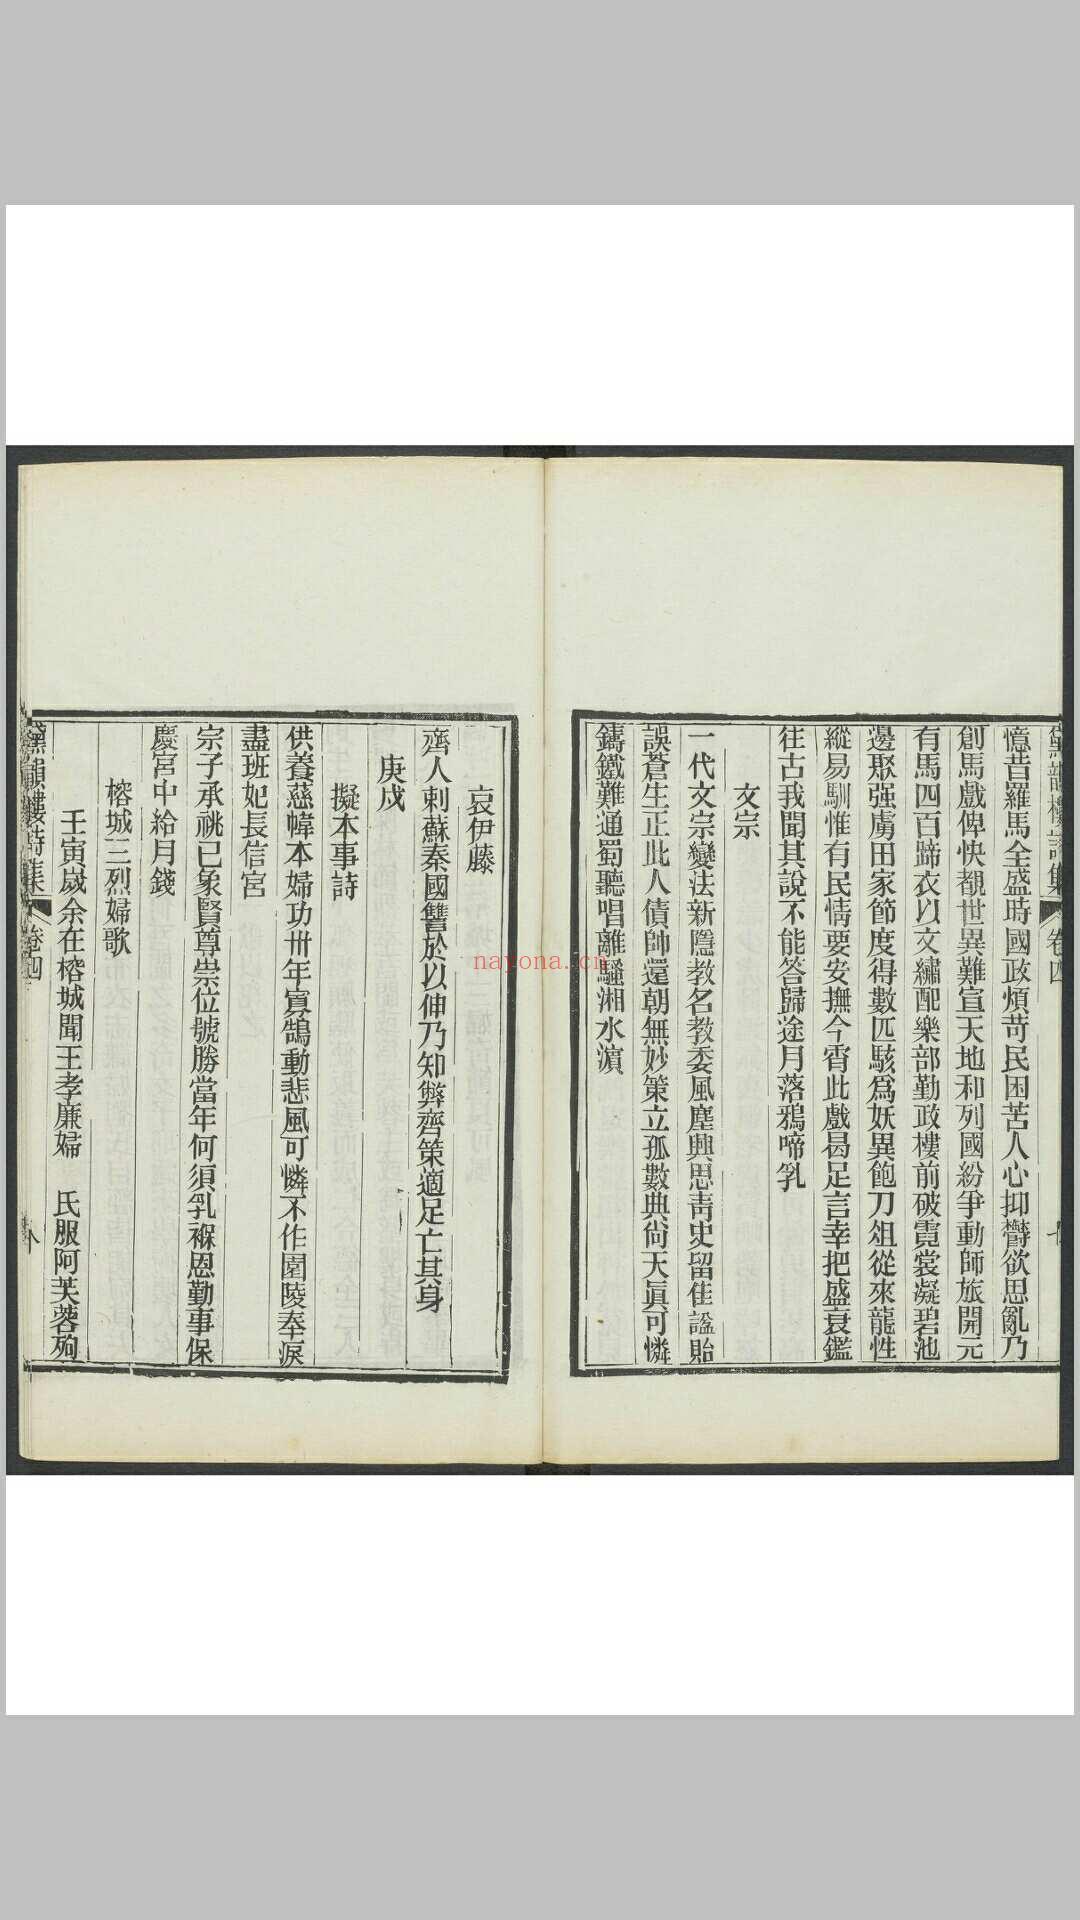 憶昔羅馬全盛時國政煩苛民困苦人心抑鬱欲思亂乃
創馬戲俾快覩世異難宣天地和列國紛爭動師旅開元
有馬四百蹄衣以文繡配樂部勤政樓前破霓裳凝碧池
邊聚强虜田家節度得數匹駭爲妖異飽刀俎從來龍性
縱易馴惟有民情要安撫今宵此戲曷足言幸把盛衰鑑
往古我聞其說不能答歸途月落鴉啼乳
文宗
一代文宗變法新隱教名教委風塵興思靑史留佳謚貽
誤蒼生正此人債帥還朝無妙策立孤數典尙天眞可憐
鑄鐵難通蜀聽唱離騷湘水濵
卷四
哀伊藤
齊人刺蘇秦國讐於以伸乃知弊齊策適足亡其身
庚戍
擬本事詩
供養慈幃本婦功卅年寡鵠動悲風可憐不作園陵奉淚
盡班妃長信宮
宗子承祧已象賢尊崇位號勝當年何須乳褓恩勤事保
慶宮中給月錢
榕城三烈婦歌
壬寅歲余在榕城聞王孝廉婦 氏服阿芙蓉殉
黛韻樓詩集 卷四 八
nayona.cn